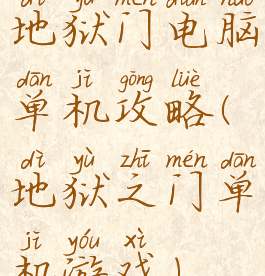 dì yù mén diàn nǎo
地狱门电脑
dān jī gōng lüè
单机攻略(
dì yù zhī mén dān
地狱之门单
jī yóu xì
机游戏)